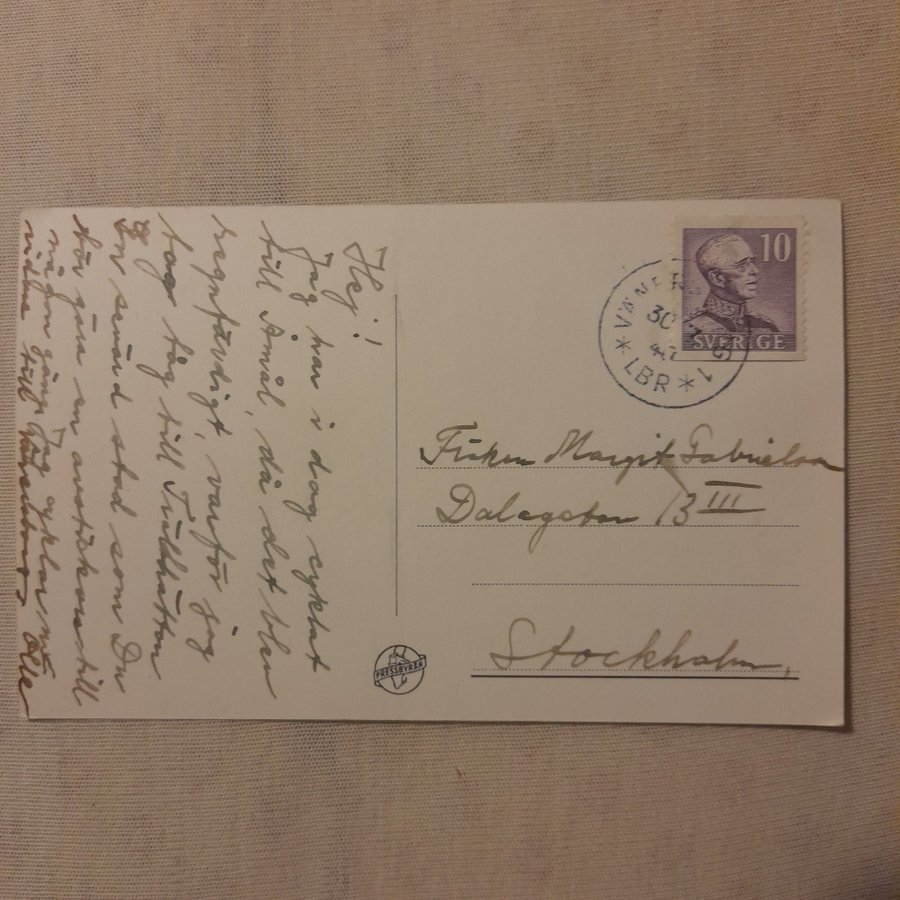 Hej!
Jag har i dag cyklat
till Åmål, då det blev
regnfärdigt, varför jag
tog tåg till Trollhättan
En sådd stad som Du
bör göra en ansökan till
någon gång. Jag cyklar nu
vidare till
Olle
10
SVERIGE
VÄNER
30 7
47
LBR
1
Fröken Margit Gabrielson
Dalagatan 13 III
Stockholm,
PRESSBYRÅN